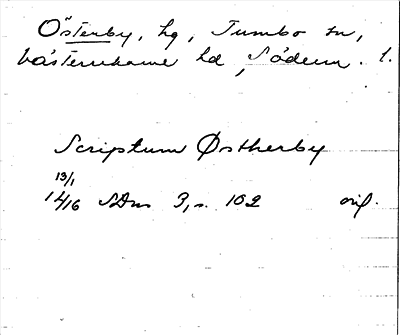 Österby, hg, Tumbo sn,
Västerrekarne hd, Söderm. l.
Scriptum Østherby
13/1
1416 SDns 3, s. 102 orig.